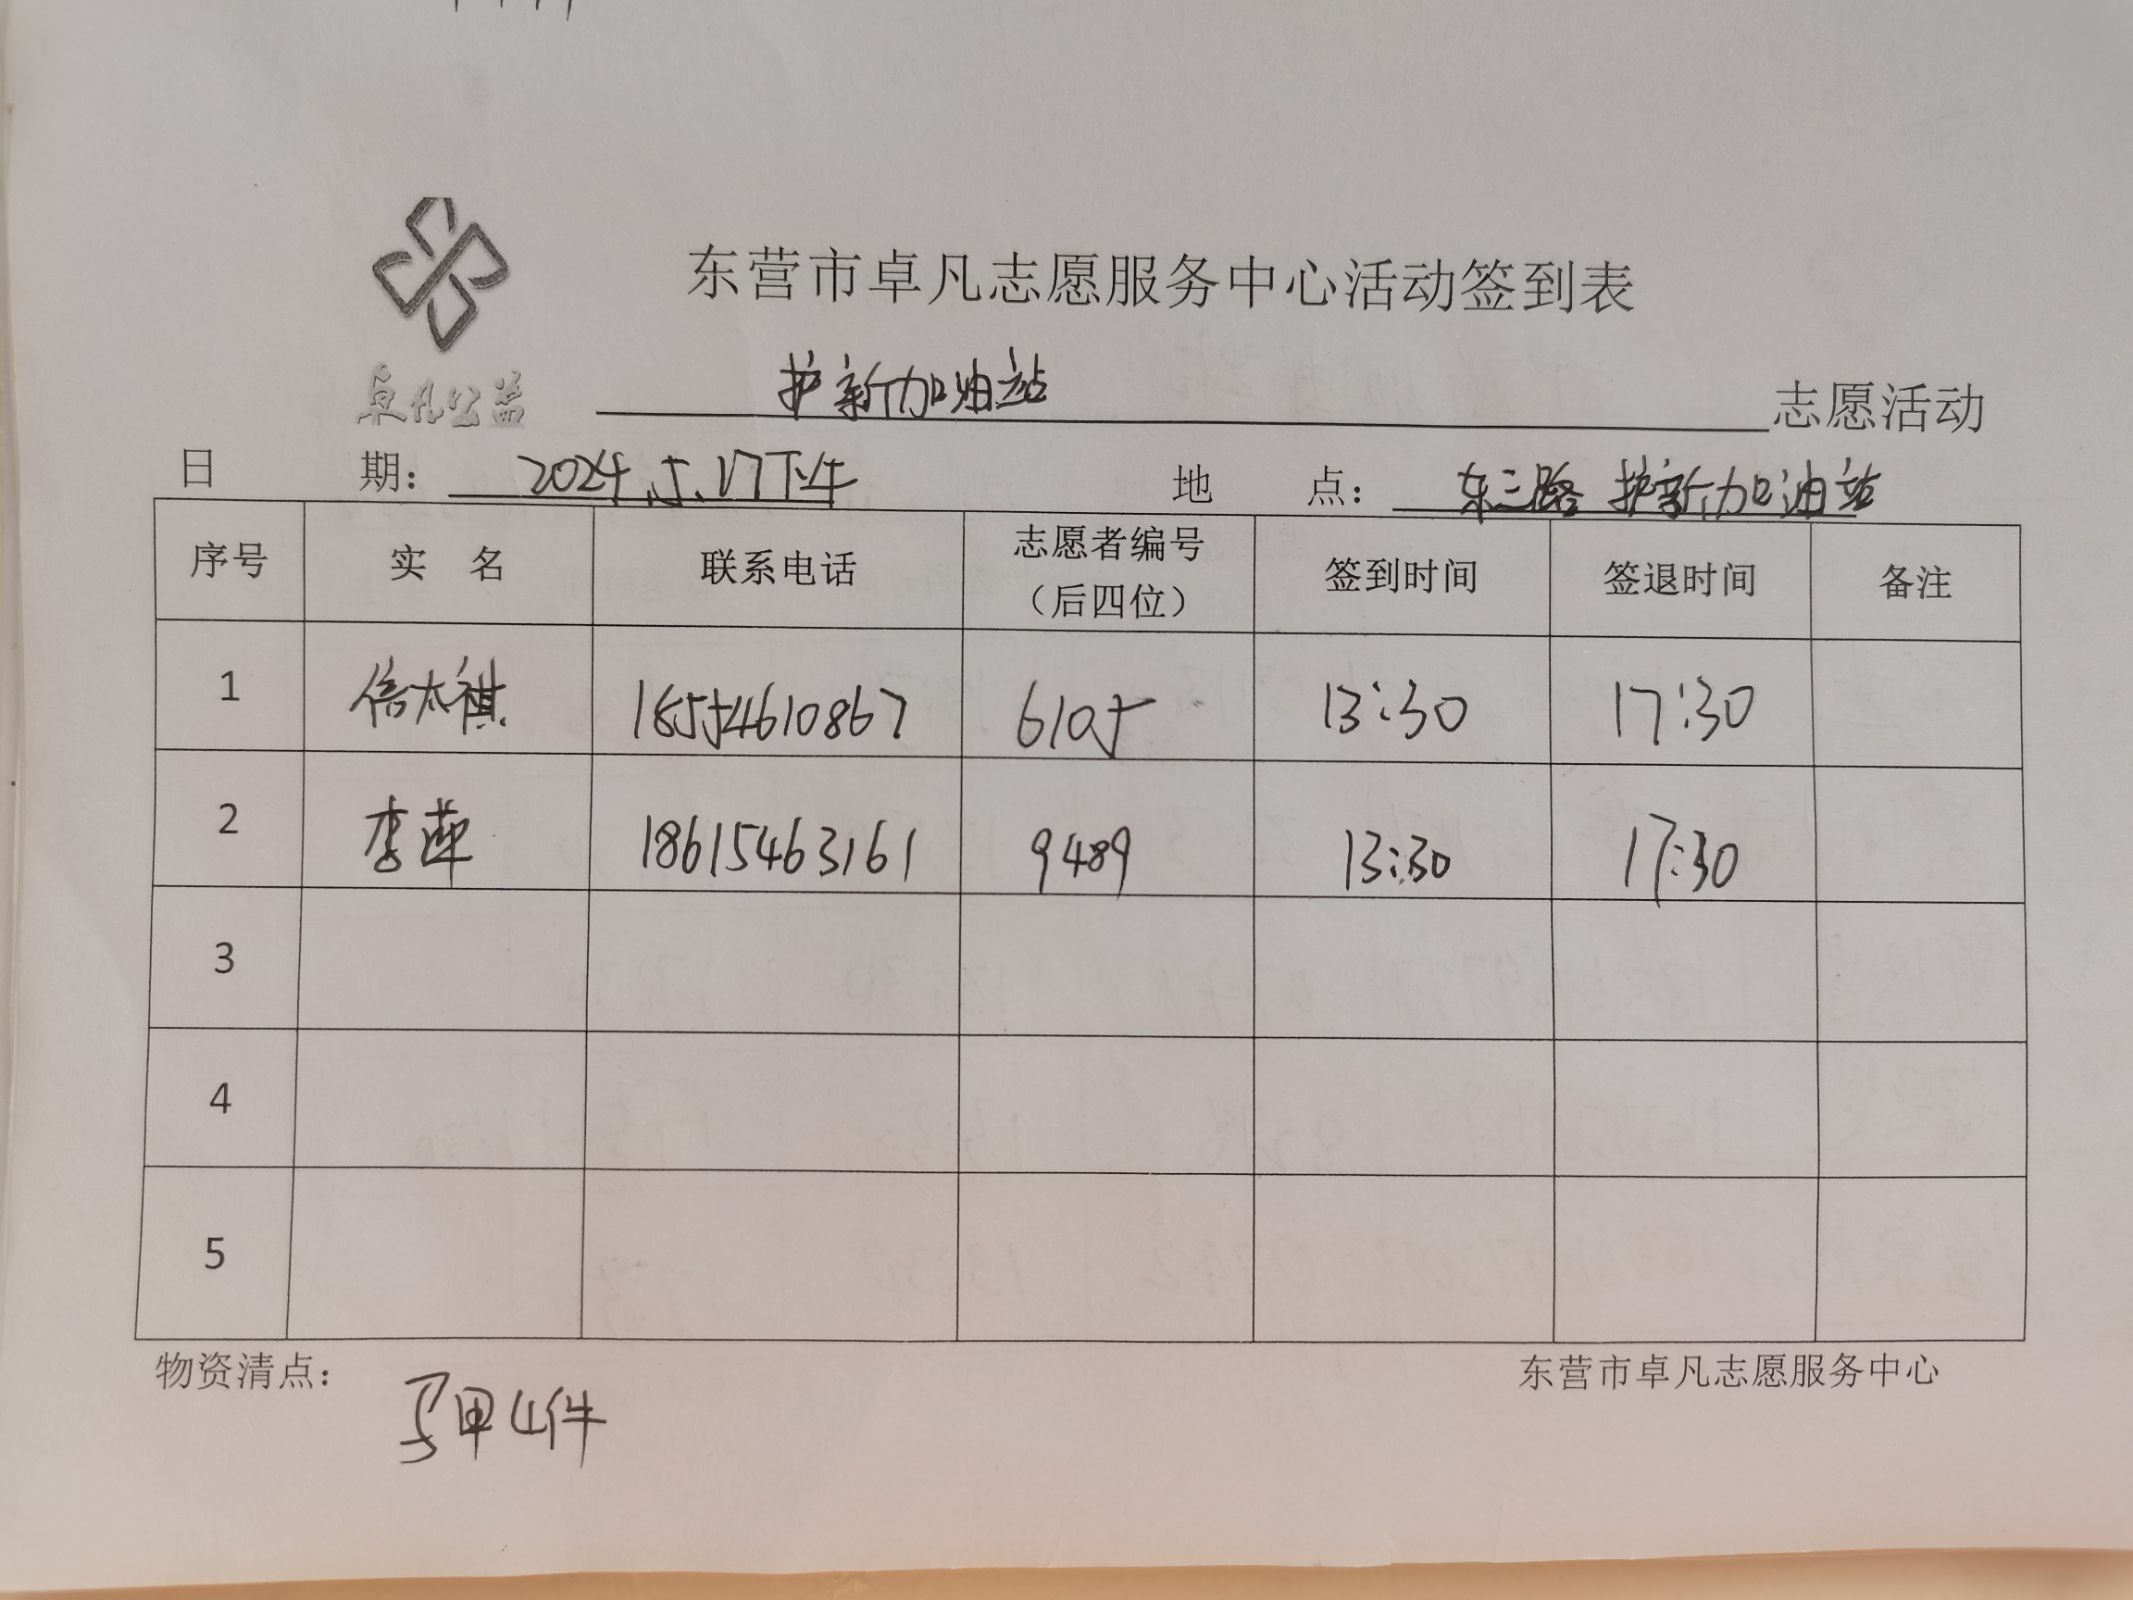 东营市卓凡志愿服务中心活动签到表
卓凡公益
护新加油站 志愿活动
日 期： 2024.5.17下午 地 点： 东三路 护新加油站
序号 实 名 联系电话 志愿者编号（后四位） 签到时间 签退时间 备注
1 信太祺 18554610867 6105 13:30 17:30
2 李莲 18615463161 9489 13:30 17:30
3
4
5
物资清点： 东营市卓凡志愿服务中心
马甲4件